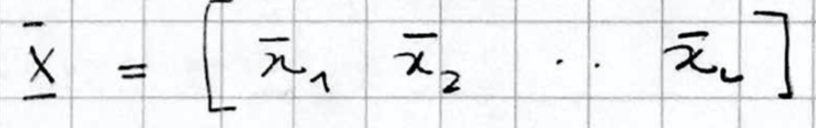 X̲̄ = [ x̄₁ x̄₂ .. x̄ᵥ ]